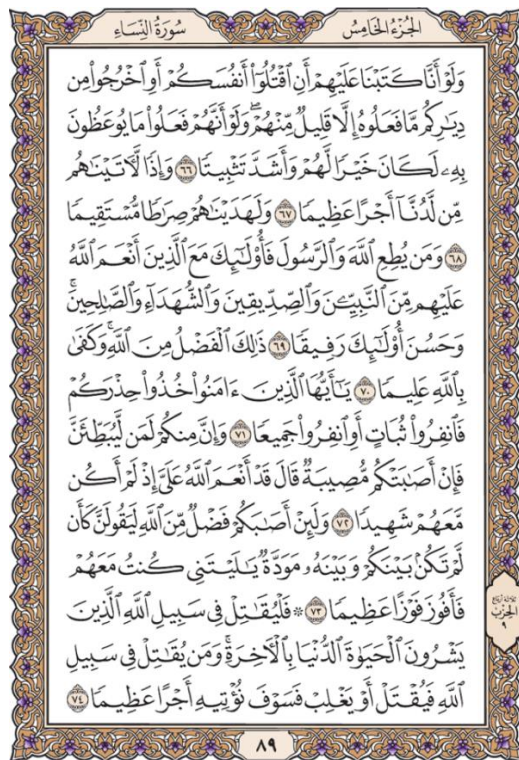 الجُزْءُ الخَامِسُ سُورَةُ النِّسَاءِ
وَلَوْ أَنَّا كَتَبْنَا عَلَيْهِمْ أَنِ ٱقْتُلُوٓاْ أَنفُسَكُمْ أَوِ ٱخْرُجُواْ مِن
دِيَٰرِكُم مَّا فَعَلُوهُ إِلَّا قَلِيلٌ مِّنْهُمْۖ وَلَوْ أَنَّهُمْ فَعَلُواْ مَا يُوعَظُونَ
بِهِۦ لَكَانَ خَيْرًا لَّهُمْ وَأَشَدَّ تَثْبِيتًا ٦٦ وَإِذًا لَّأٓتَيْنَٰهُم
مِّن لَّدُنَّآ أَجْرًا عَظِيمًا ٦٧ وَلَهَدَيْنَٰهُمْ صِرَٰطًا مُّسْتَقِيمًا
٦٨ وَمَن يُطِعِ ٱللَّهَ وَٱلرَّسُولَ فَأُوْلَٰٓئِكَ مَعَ ٱلَّذِينَ أَنْعَمَ ٱللَّهُ
عَلَيْهِم مِّنَ ٱلنَّبِيِّـۧنَ وَٱلصِّدِّيقِينَ وَٱلشُّهَدَآءِ وَٱلصَّٰلِحِينَۚ
وَحَسُنَ أُوْلَٰٓئِكَ رَفِيقًا ٦٩ ذَٰلِكَ ٱلْفَضْلُ مِنَ ٱللَّهِۚ وَكَفَىٰ
بِٱللَّهِ عَلِيمًا ٧٠ يَٰٓأَيُّهَا ٱلَّذِينَ ءَامَنُواْ خُذُواْ حِذْرَكُمْ
فَٱنفِرُواْ ثُبَاتٍ أَوِ ٱنفِرُواْ جَمِيعًا ٧١ وَإِنَّ مِنكُمْ لَمَن لَّيُبَطِّئَنَّ
فَإِنْ أَصَٰبَتْكُم مُّصِيبَةٌ قَالَ قَدْ أَنْعَمَ ٱللَّهُ عَلَيَّ إِذْ لَمْ أَكُن
مَّعَهُمْ شَهِيدًا ٧٢ وَلَئِنْ أَصَٰبَكُمْ فَضْلٌ مِّنَ ٱللَّهِ لَيَقُولَنَّ كَأَن
لَّمْ تَكُنۢ بَيْنَكُمْ وَبَيْنَهُۥ مَوَدَّةٌ يَٰلَيْتَنِي كُنتُ مَعَهُمْ
فَأَفُوزَ فَوْزًا عَظِيمًا ٧٣ ۞ فَلْيُقَٰتِلْ فِي سَبِيلِ ٱللَّهِ ٱلَّذِينَ
يَشْرُونَ ٱلْحَيَوٰةَ ٱلدُّنْيَا بِٱلْأٓخِرَةِۚ وَمَن يُقَٰتِلْ فِي سَبِيلِ
ٱللَّهِ فَيُقْتَلْ أَوْ يَغْلِبْ فَسَوْفَ نُؤْتِيهِ أَجْرًا عَظِيمًا ٧٤
ثلاثة أرباع
الحزب
٩
٨٩